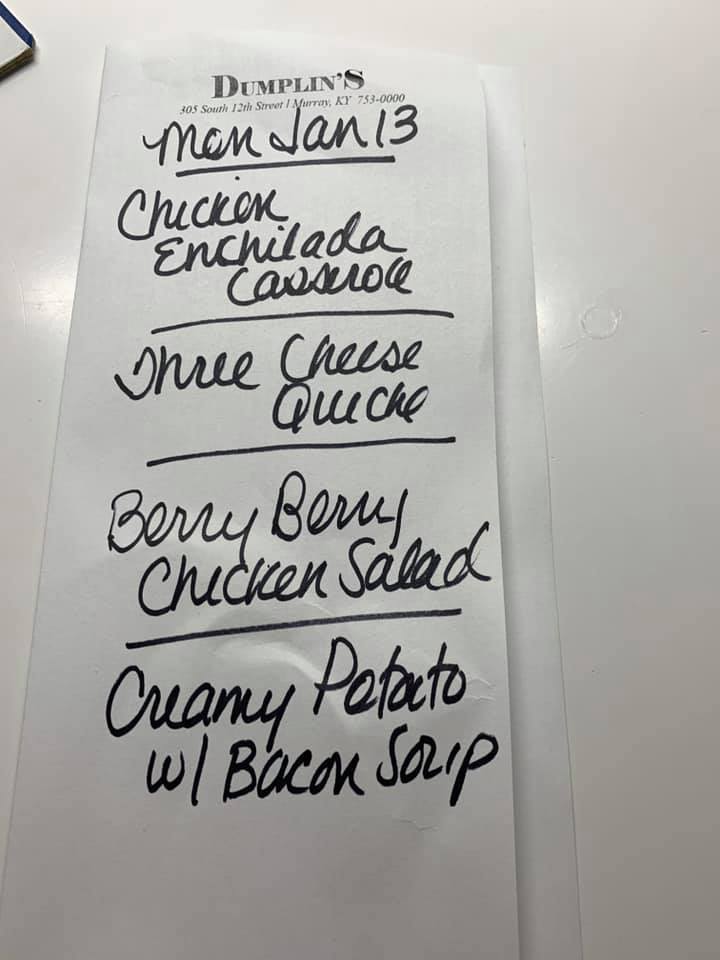 DUMPLIN'S
305 South 12th Street | Murray, KY 753-0000
Mon Jan 13
Chicken
Enchilada
Casserole
Three Cheese
Quiche
Berry Berry
Chicken Salad
Creamy Potato
w/ Bacon Soup